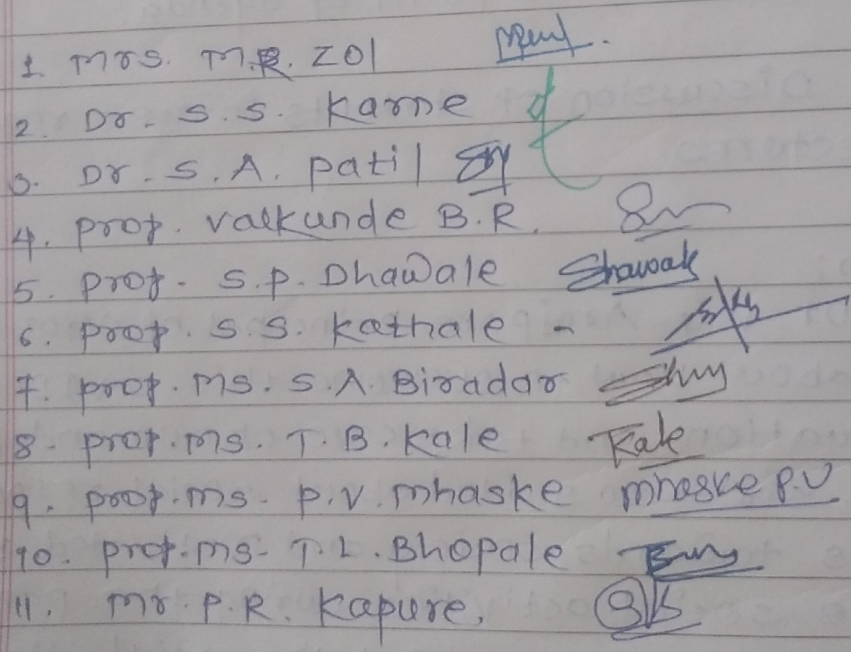 1. Mrs. M.R. Zol
2. Dr. S. S. Karne
3. Dr. S. A. Patil
4. prof. Valkunde B.R.
5. prof. S.P. Dhawale Shawale
6. prof. S.S. Kathale -
7. prof. Ms. S.A. Biradar
8. prof. Ms. T.B. Kale Kale
9. prof. Ms. P.V. Mhaske Mhaske P.V
10. prof. Ms. T.L. Bhopale
11. Mr. P.R. Kapure.